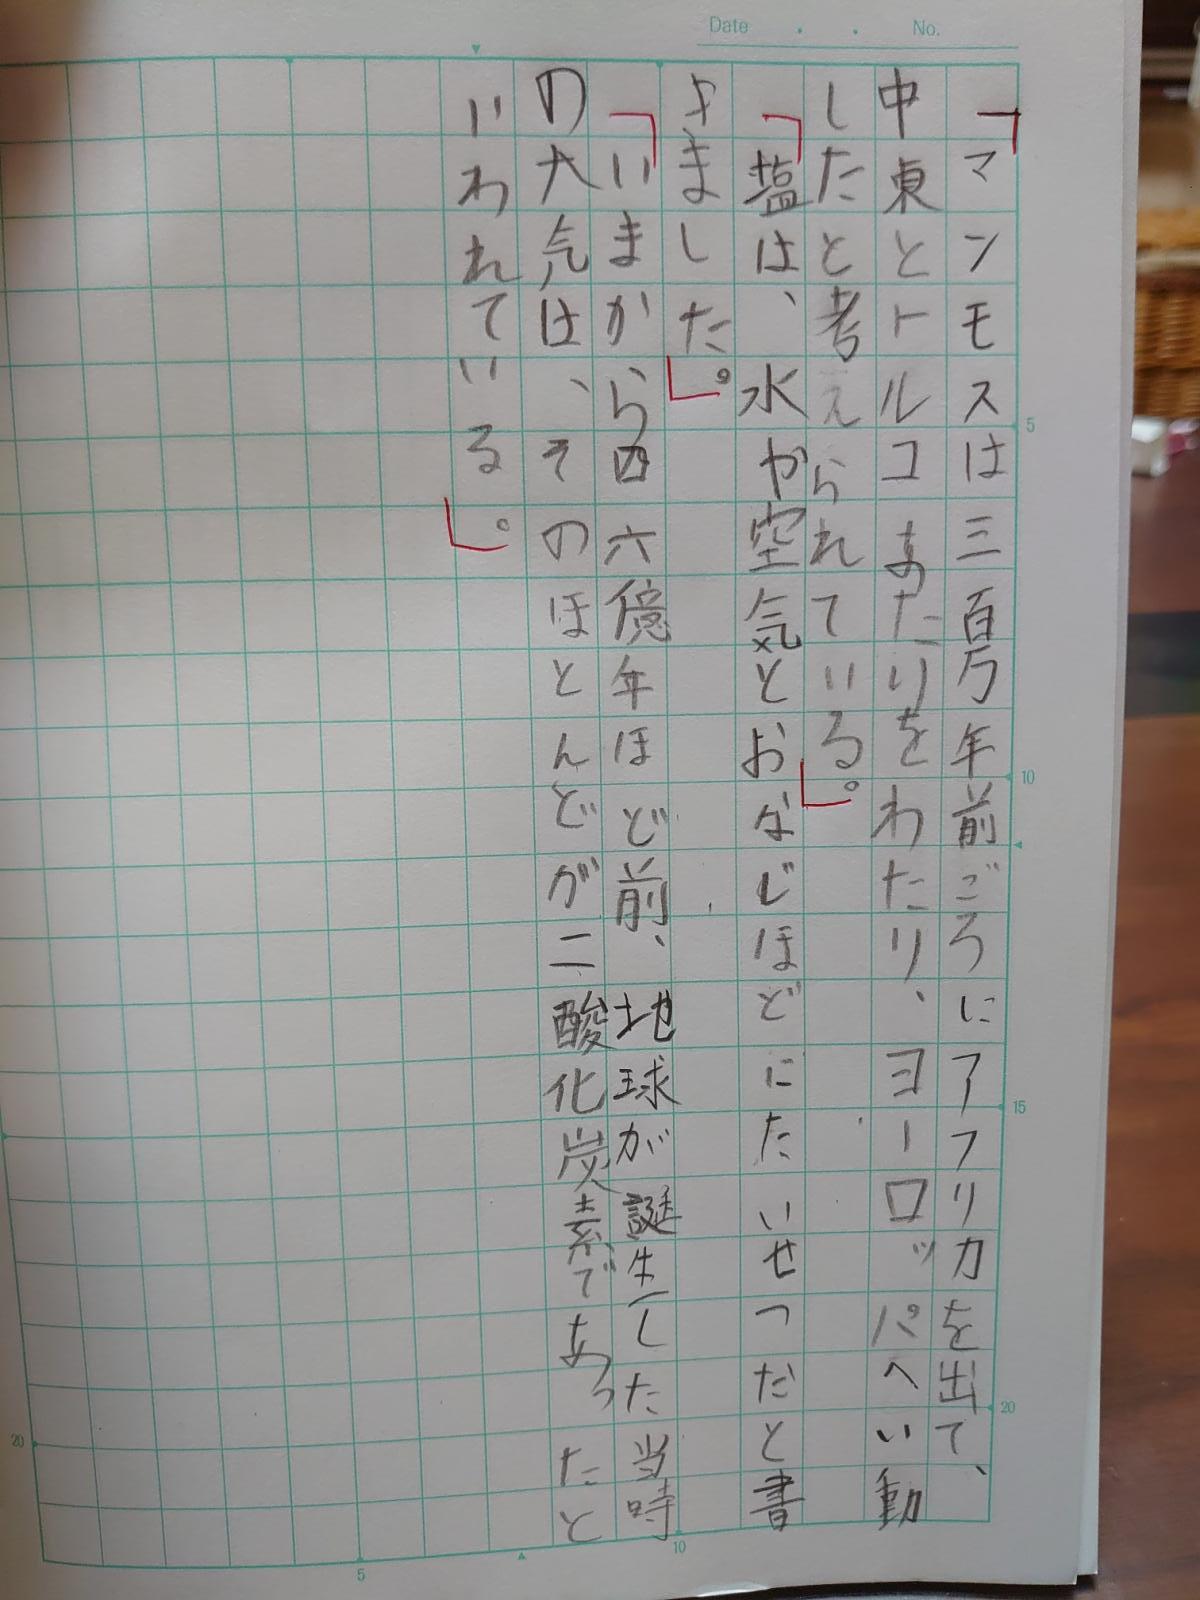 Date . . No.
「マンモスは三百万年前ごろにアフリカを出て、
中東とトルコあたりをわたり、ヨーロッパへい動
したと考えられている。」
「塩は、水や空気とおなじほどにたいせつだと書
よました。」
「いまから四六億年ほど前、地球が誕生した当時
の大気は、そのほとんどが二酸化炭素であったと
いわれている。」
5
10
15
20
20
5
10